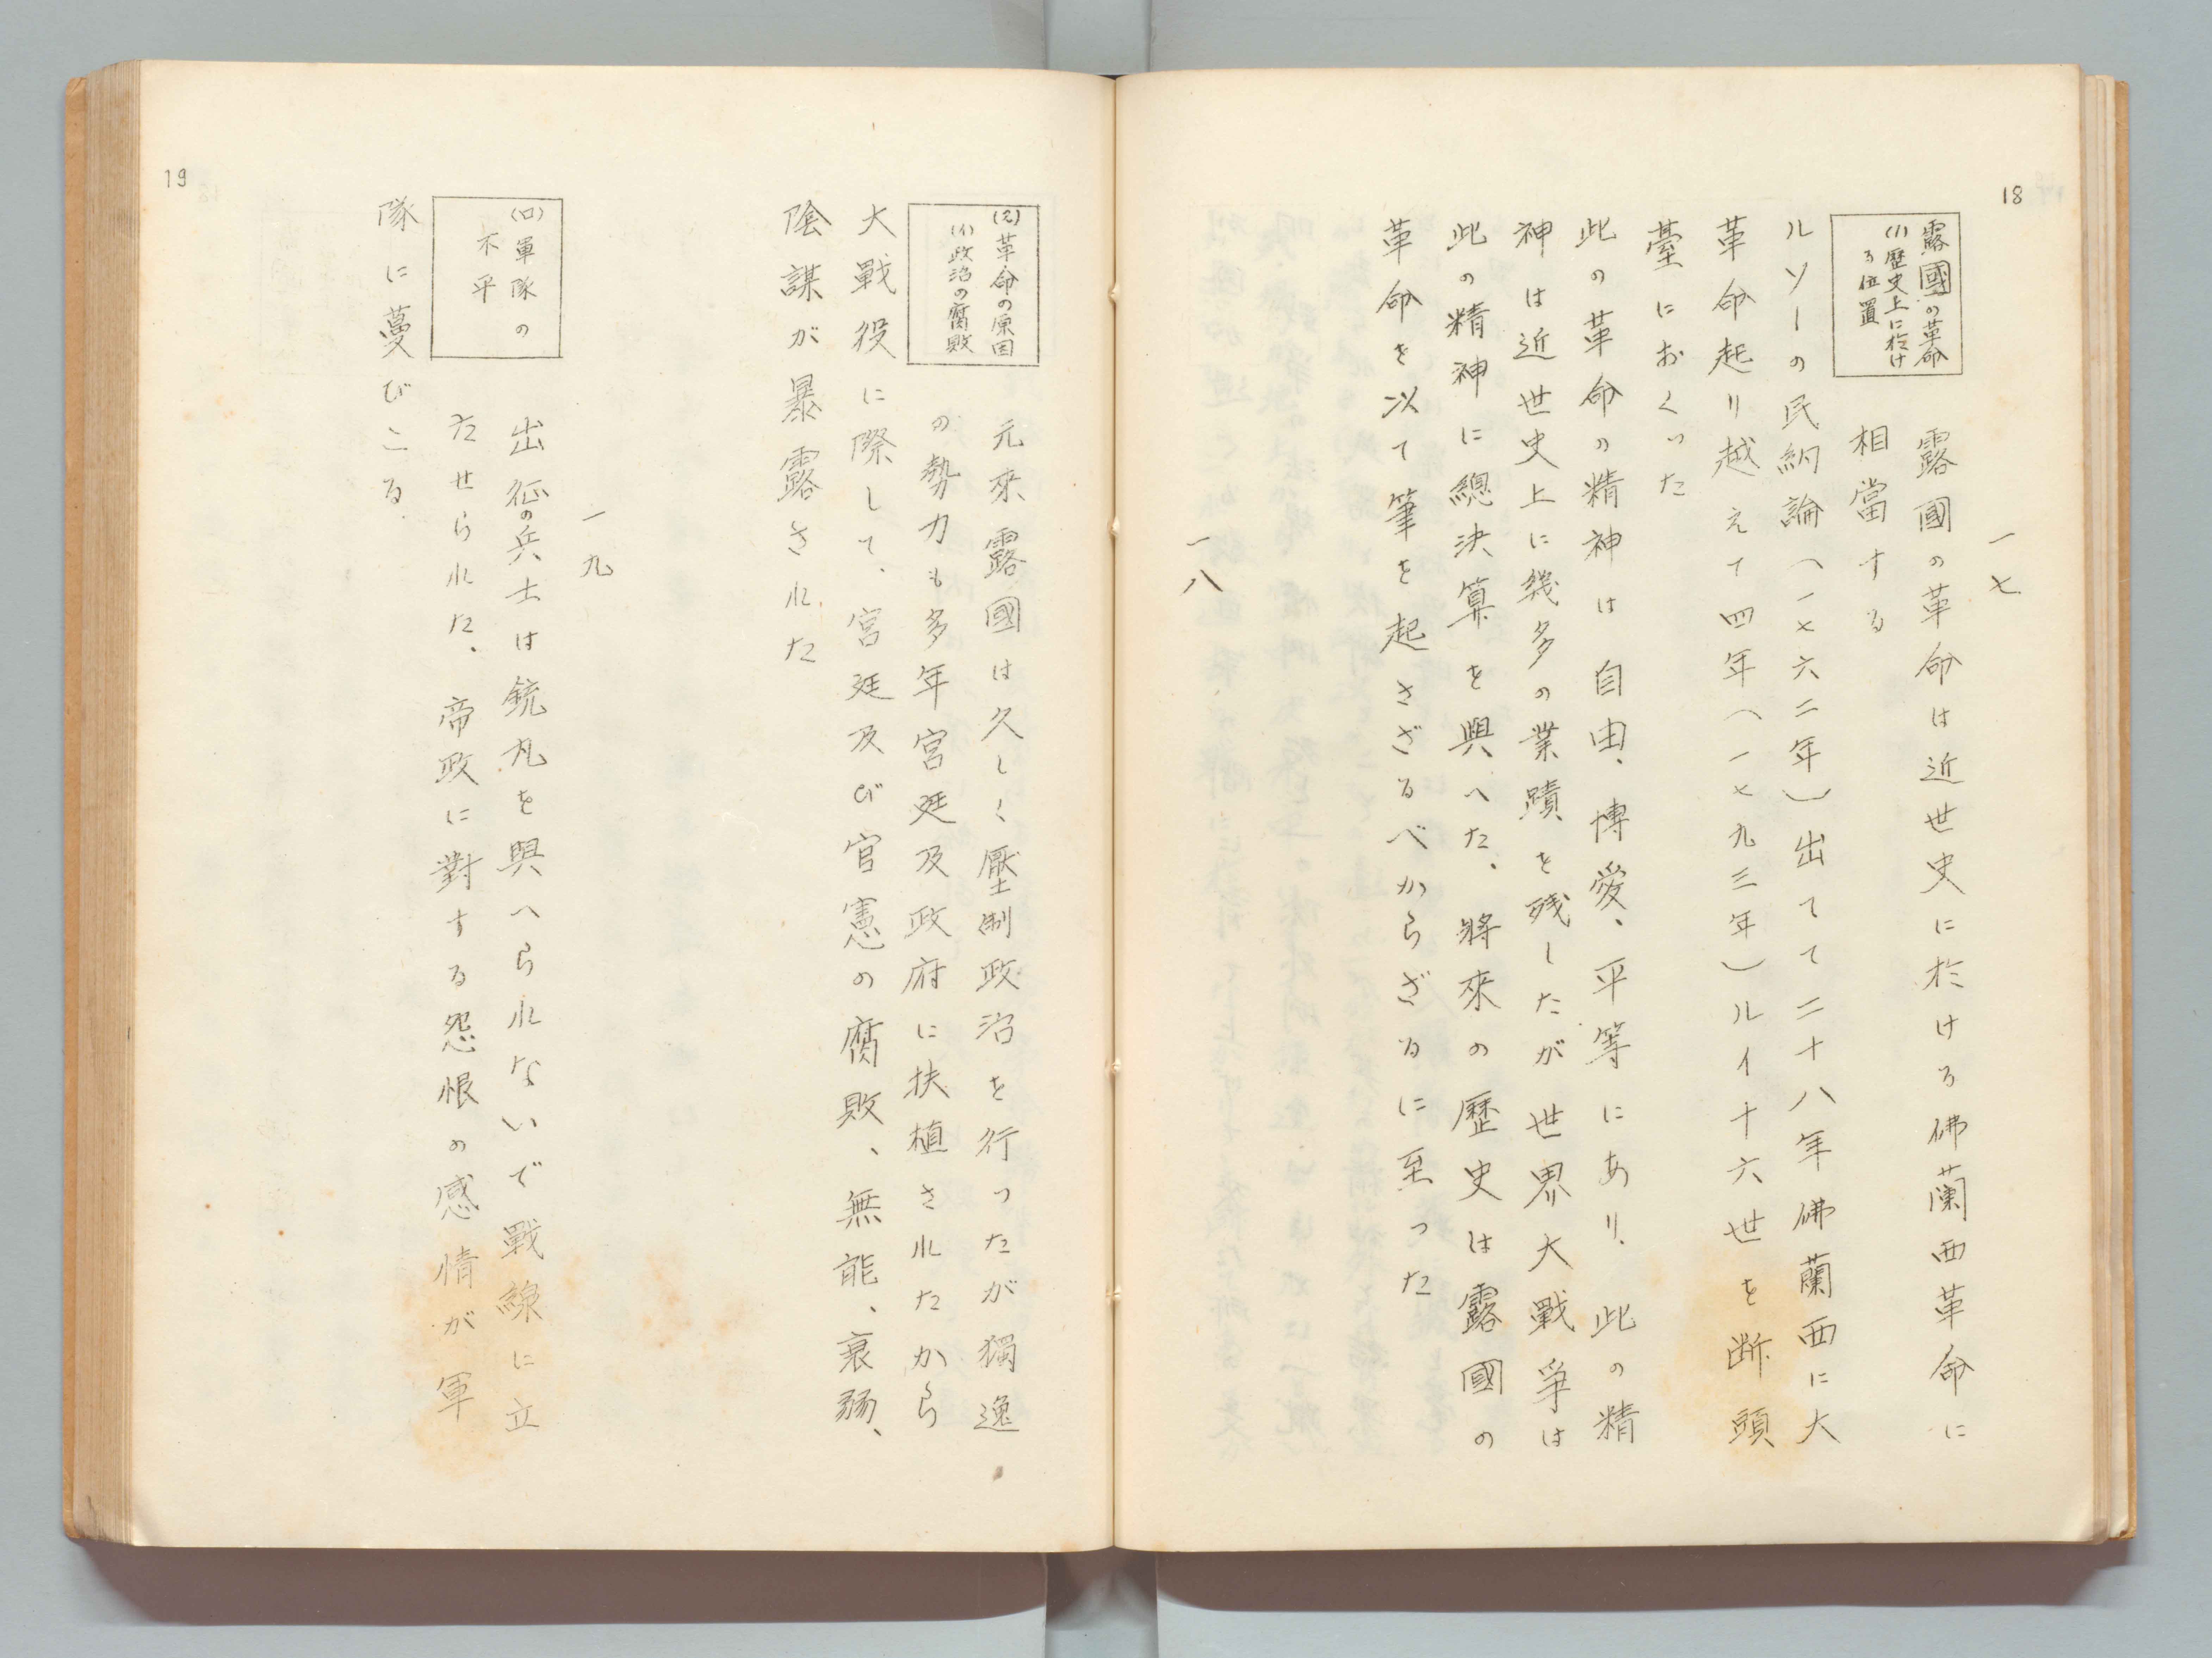 18
一七
露國の革命
(1)歴史上に於け
る位置
露國の革命は近世史に於ける佛蘭西革命に
相當する
ルソーの民約論(一七六二年)出てて二十八年佛蘭西に大
革命起り越えて四年(一七九三年)ルイ十六世を断頭
臺におくつた
此の革命の精神は自由、博愛、平等にあり、此の精
神は近世史上に幾多の業蹟を残したが世界大戰爭は
此の精神に總決算を與へた、將來の歷史は露國の
革命を以て筆を起さざるべからざるに至つた
一八
(2)革命の原因
(イ)政治の腐敗
元來露國は久しく壓制政治を行つたが獨逸
の勢力も多年宮廷及政府に扶植されたから
大戰役に際して、宮廷及び官憲の腐敗、無能、衰弱、
陰謀が暴露された
一九
(ロ)軍隊の
不平
出征の兵士は銃丸を與へられないで戰線に立
たせられた、帝政に對する怨恨の感情が軍
隊に蔓びこる.
19